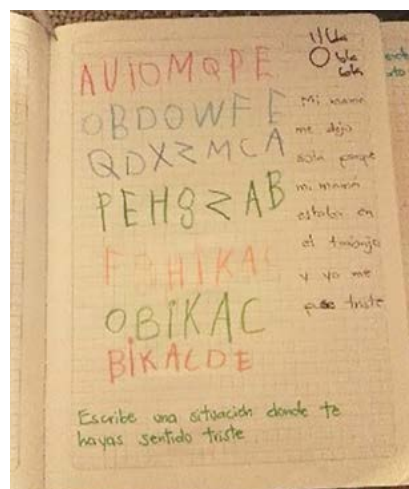 AUIOMQPE
OBDOWFE
QDXZMCA
PEH8ZAB
FOHIKAC
OBIKAC
BIKALDE
Mi mamá
me dejo
sola porque
mi mamá
estaba en
el trabajo
y yo me
puse triste
Escribe una situación donde te
hayas sentido triste